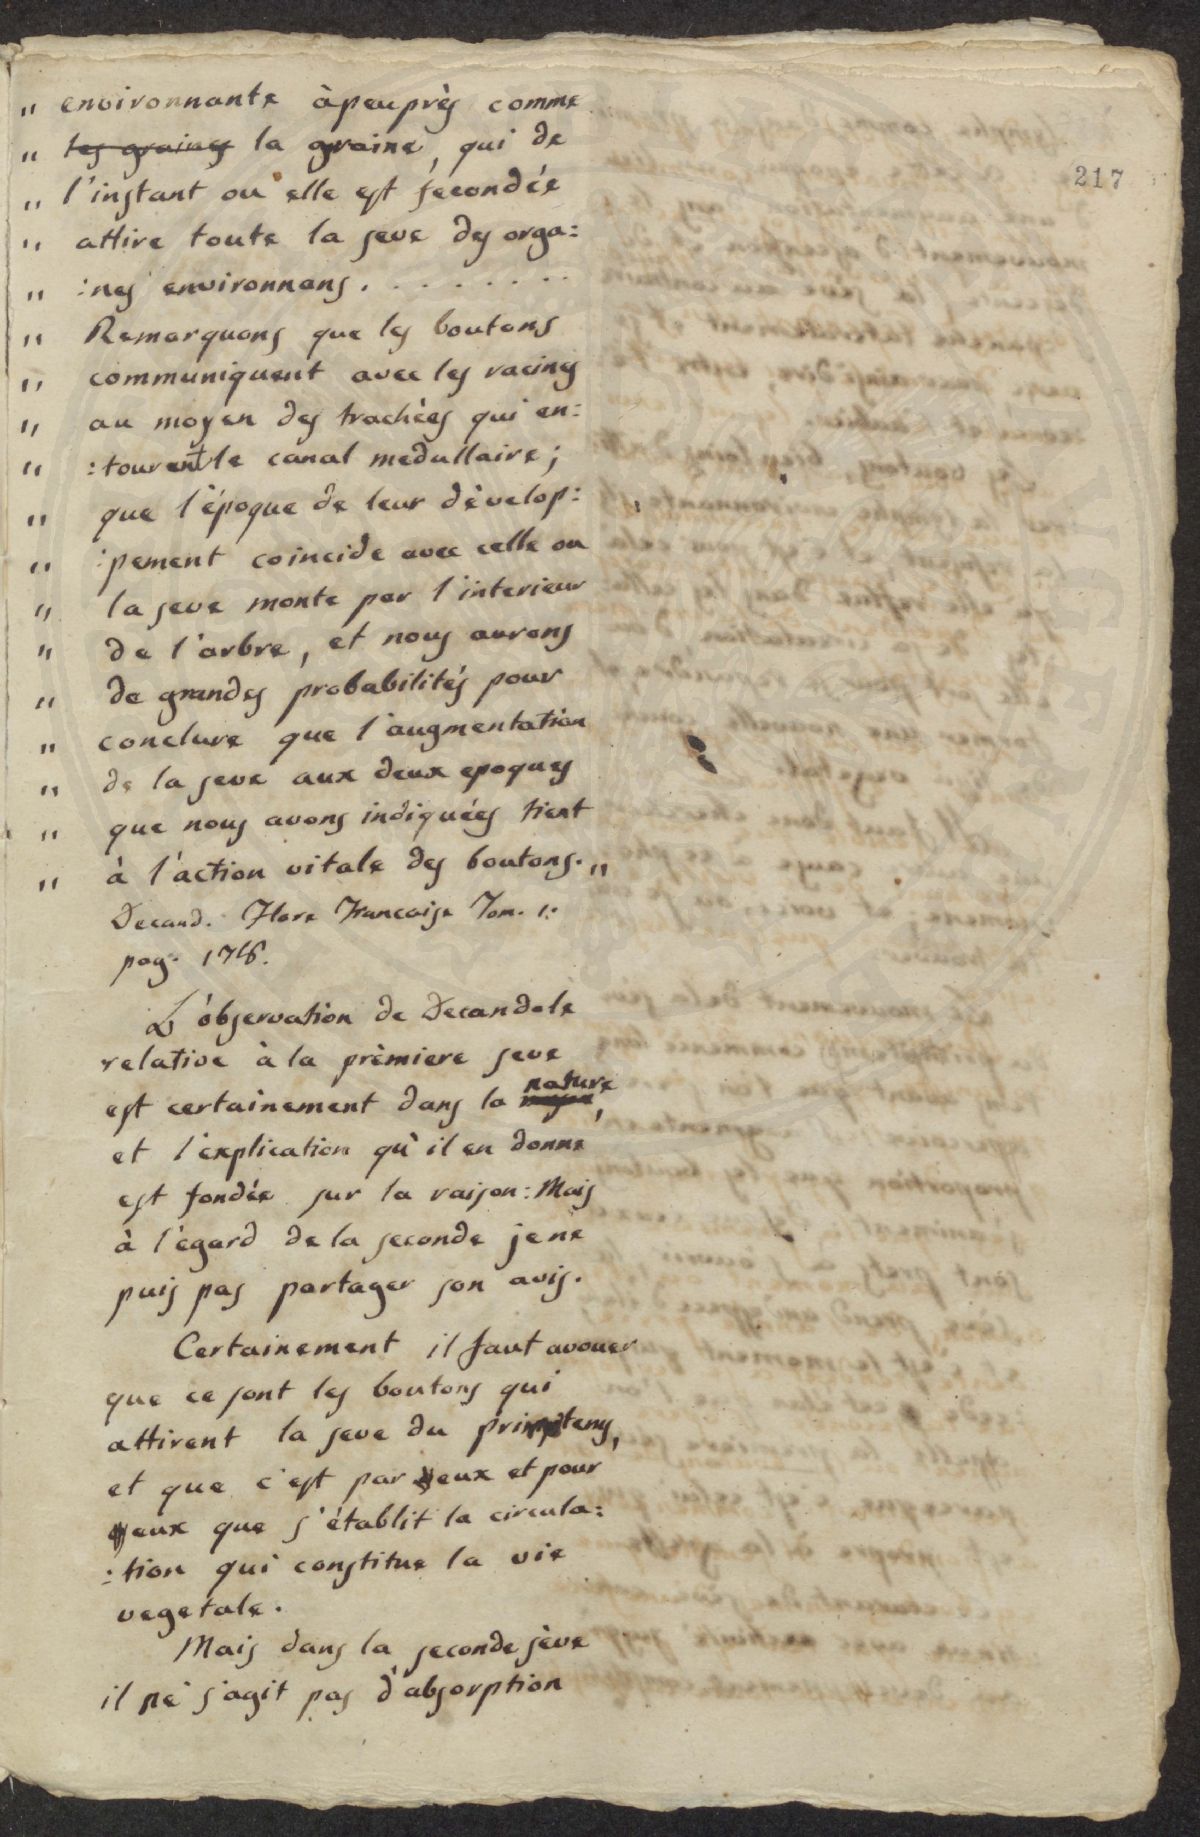 217
„ environnante àpeuprès comme
„ les graines la graine, qui de
„ l'instant ou elle est fecondée
„ attire toute la seve des orga:
„ :nes environnans . . . . . . . .
„ Remarquons que les boutons
„ communiquent avec les racines
„ au moyen des trachées qui en:
„ :tourent le canal medullaire;
„ que l'époque de leur dévelop:
„ :pement coincide avec celle ou
„ la seve monte par l'interieur
„ de l'arbre, et nous aurons
„ de grandes probabilités pour
„ conclure que l'augmentation
„ de la seve aux deux epoques
„ que nous avons indiquées tient
„ à l'action vitale des boutons. „
Decand. Flore Francaise Tom. 1:
pag.
L'observation de Decandole
relative à la prèmiere seve
est certainement dans la nature,
et l'explication qu'il en donne
est fondée sur la raison: Mais
à l'egard de la seconde je ne
puis pas partager son avis.
Certainement il faut avouer
que ce sont les boutons qui
attirent la seve du printems,
et que c'est par eux et pour
eux que s'établit la circula:
:tion qui constitue la vie
vegetale.
Mais dans la seconde sève
il ne s'agit pas d'absorption